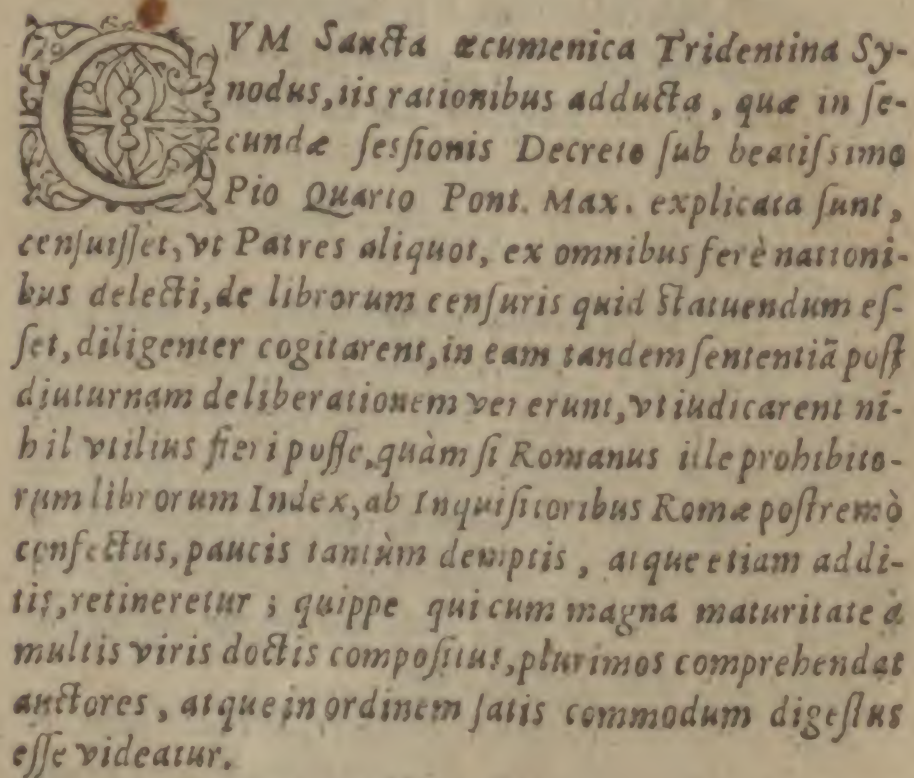 CVM Sancta œcumenica Tridentina Sy-
nodus, iis rationibus adducta, quæ in ſe-
cundæ ſeſſionis Decreto ſub beatiſsimo
Pio Quarto Pont. Max. explicata ſunt,
cenſuiſſet, vt Patres aliquot, ex omnibus ferè nationi-
bus delecti, de librorum cenſuris quid ſtatuendum eſ-
ſet, diligenter cogitarent, in eam tandem ſententiã poſt
diuturnam deliberationem venerunt, vt iudicarent ni-
hil vtilius fieri poſſe, quàm ſi Romanus ille prohibito-
rum librorum Index, ab Inquiſitoribus Romæ poſtremò
confectus, paucis tantùm demptis, atque etiam addi-
tis, retineretur; quippe qui cum magna maturitate à
multis viris doctis compoſitus, plurimos comprehendat
auctores, atque in ordinem ſatis commodum digeſtus
eſſe videatur.